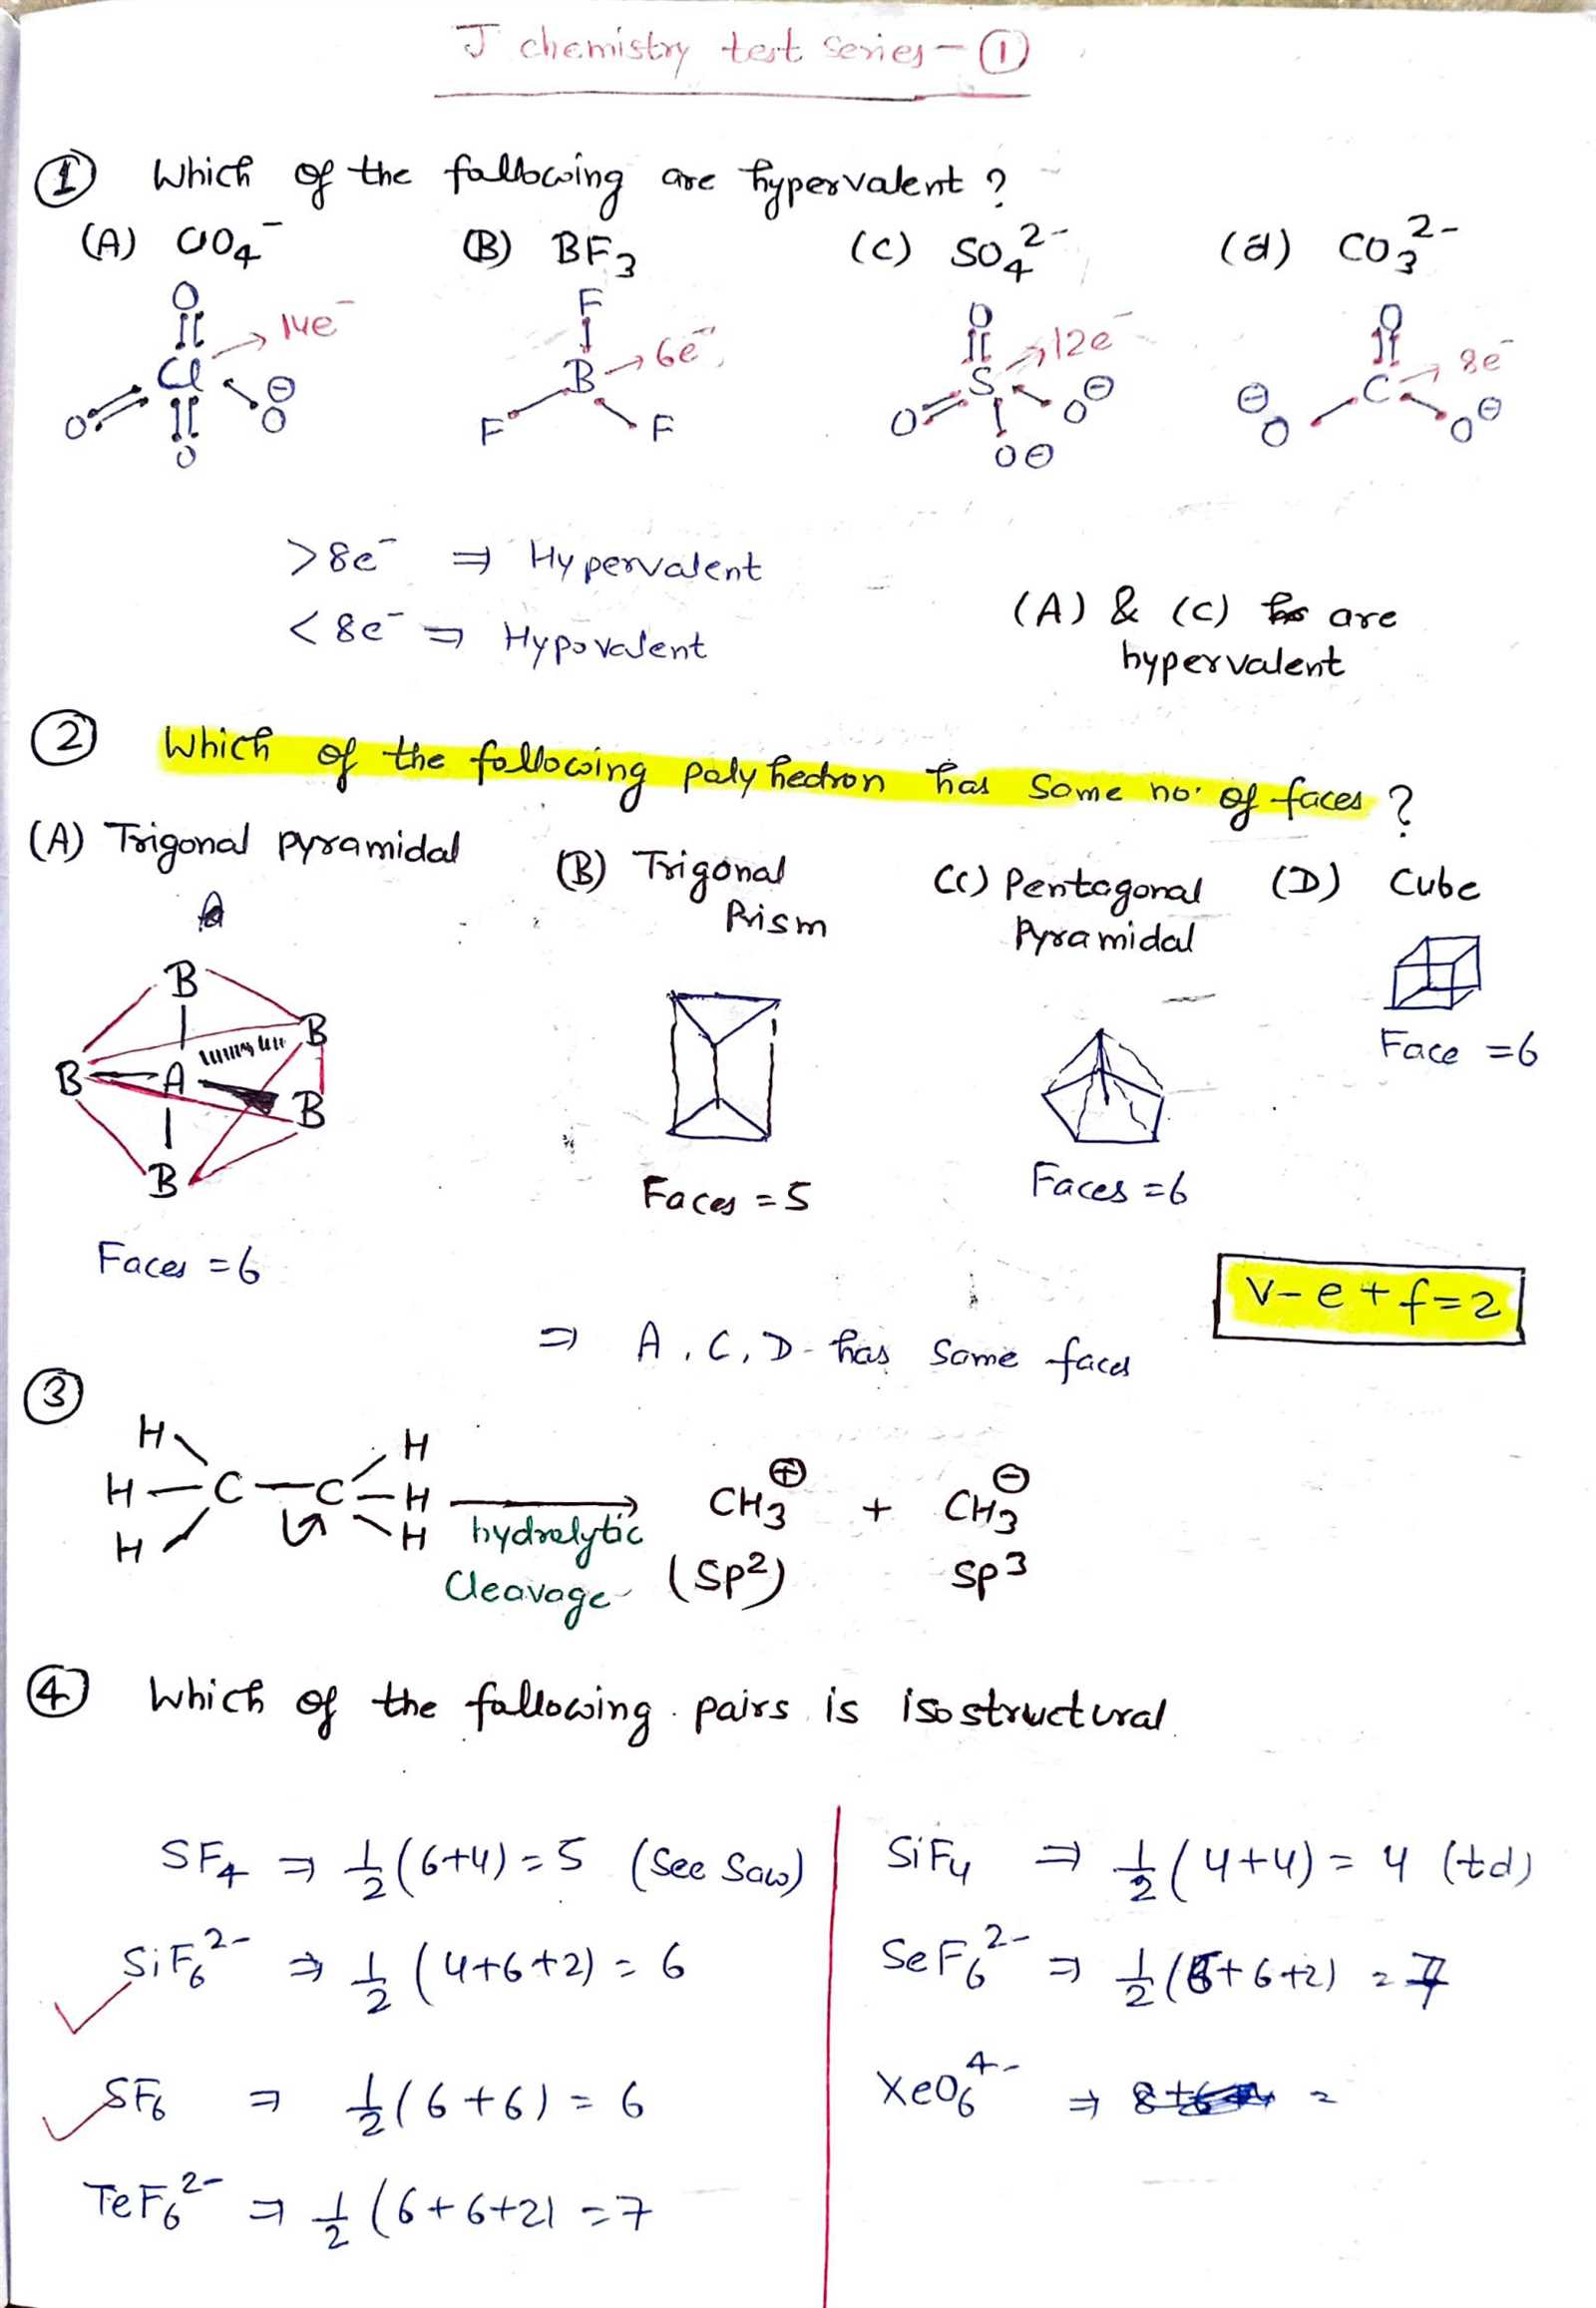 J chemistry test series - ①
① Which of the following are hypervalent ?
(A) ClO4⁻ (B) BF3 (C) SO4²⁻ (d) CO3²⁻
O F O O
14e⁻ 6e⁻ 12e⁻ 8e⁻
Cl B S C
O ⊖ O F F O O⊖ ⊖ O O⊖
O O⊖
>8e⁻ ⇒ Hypervalent
<8e⁻ ⇒ Hypovalent
(A) & (C) are
hypervalent
② Which of the following polyhedron has same no. of faces ?
(A) Trigonal pyramidal (B) Trigonal Prism (C) Pentagonal Pyramidal (D) Cube
B
B
B A B
B
Face = 6
Faces = 5
Faces = 6
Faces = 6
v - e + f = 2
⇒ A, C, D - has same faces
③
H H
H — C — C — H
H H
hydrolytic
Cleavage
CH3⊕ + CH3⊖
(Sp²) sp³
④ Which of the following pairs is isostructural
SF4 ⇒ ½ (6+4) = 5 (See Saw) SiF4 ⇒ ½ (4+4) = 4 (td)
SiF6²⁻ ⇒ ½ (4+6+2) = 6 SeF6²⁻ ⇒ ½ (6+6+2) = 7
✓
SF6 ⇒ ½ (6+6) = 6 XeO6⁴⁻ ⇒ =
✓
TeF6²⁻ ⇒ ½ (6+6+2) = 7